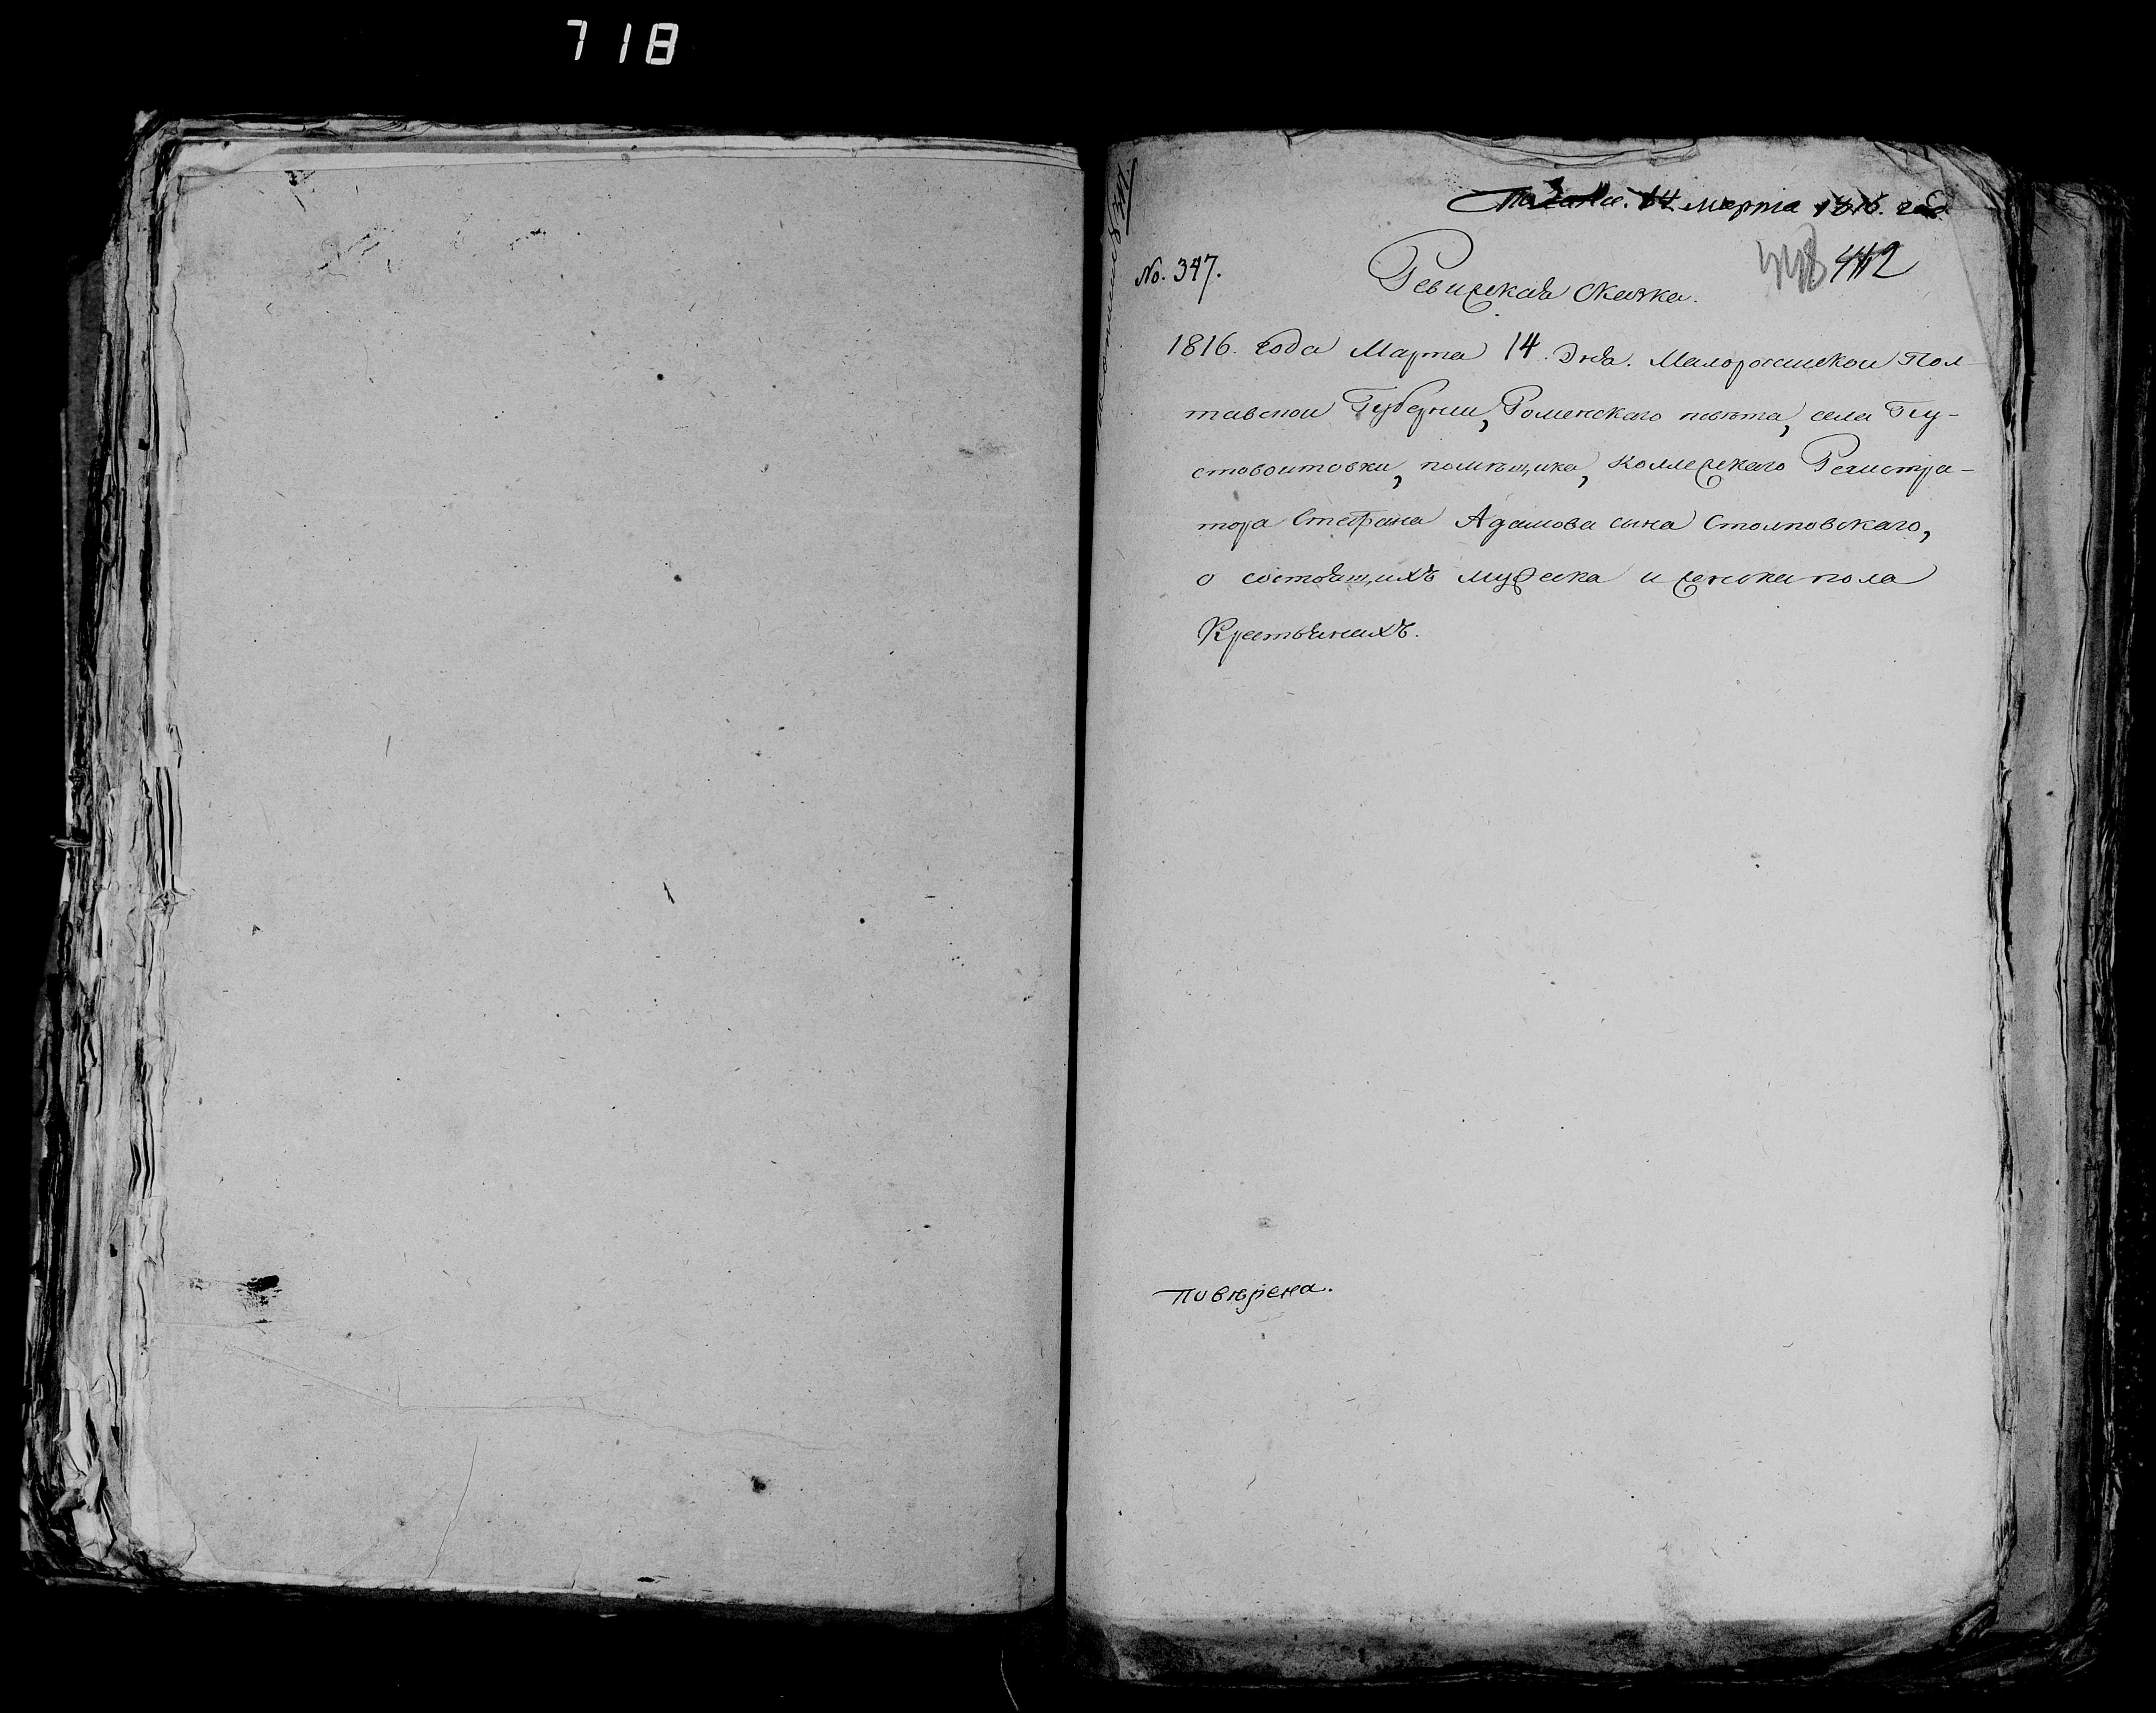 718
Подана. 14. марта 1816. года
No. 347.
442
Ревижская Сказка.
1816. года Марта 14. дня. Малоросийской Пол-
тавской Губернии, Роменского повѣта, села Гу-
ствоитовки, помѣщика, Коллежскаго Регистра-
тора Стефана Адамова сына Столповскаго,
о состоящихъ мужеска и женска пола
Крестьянахъ.
Повѣрена.